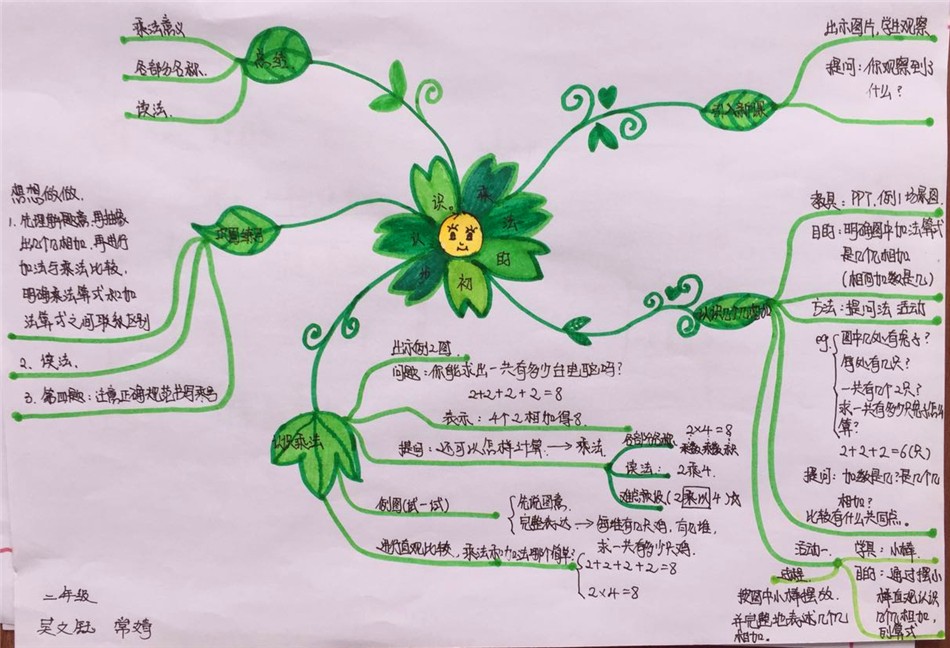 认识乘法的初步
引入新课
出示图片,学生观察
提问:你观察到了
什么?
认识几个几相加
教具:PPT,例1场景图.
目的:明确图中加法算式
是几个几相加
(相同加数是几)
方法:提问法 活动
eg:
图中几处有兔子?
每处有几只?
一共有几个2只?
求一共有多少只兔子怎么
算?
2+2+2=6(只)
提问:加数是几?是几个几
相加?
比较有什么共同点。
活动一.
学具:小棒.
目的:通过摆小
棒直观认识
几个几相加,
列算式
过程.
按图中小棒摆放.
并完整地表述几个几
相加.
认识乘法
出示例2图.
问题:你能求出一共有多少台电脑吗?
2+2+2+2=8
表示:4个2相加得8.
提问:还可以怎样计算.→乘法
各部分名称.
2×4=8
乘数乘数积
读法:2乘4.
(2乘以4)法
例图(试一试)
先说图意.
完整表达→每堆有几只鸡,有几堆,
求一共有多少只鸡.
进行直观比较,乘法和加法哪个简单?
2+2+2+2=8
2×4=8
巩固练习
想想做做.
1. 先理解题意,再抽象
出几个几相加,再进行
加法与乘法比较.
明确乘法算式和加
法算式之间联系区别
2. 读法.
3. 第四题:注意正确规范书写乘号
总结
乘法意义
各部分名称.
读法.
二年级
吴文钰 常婧